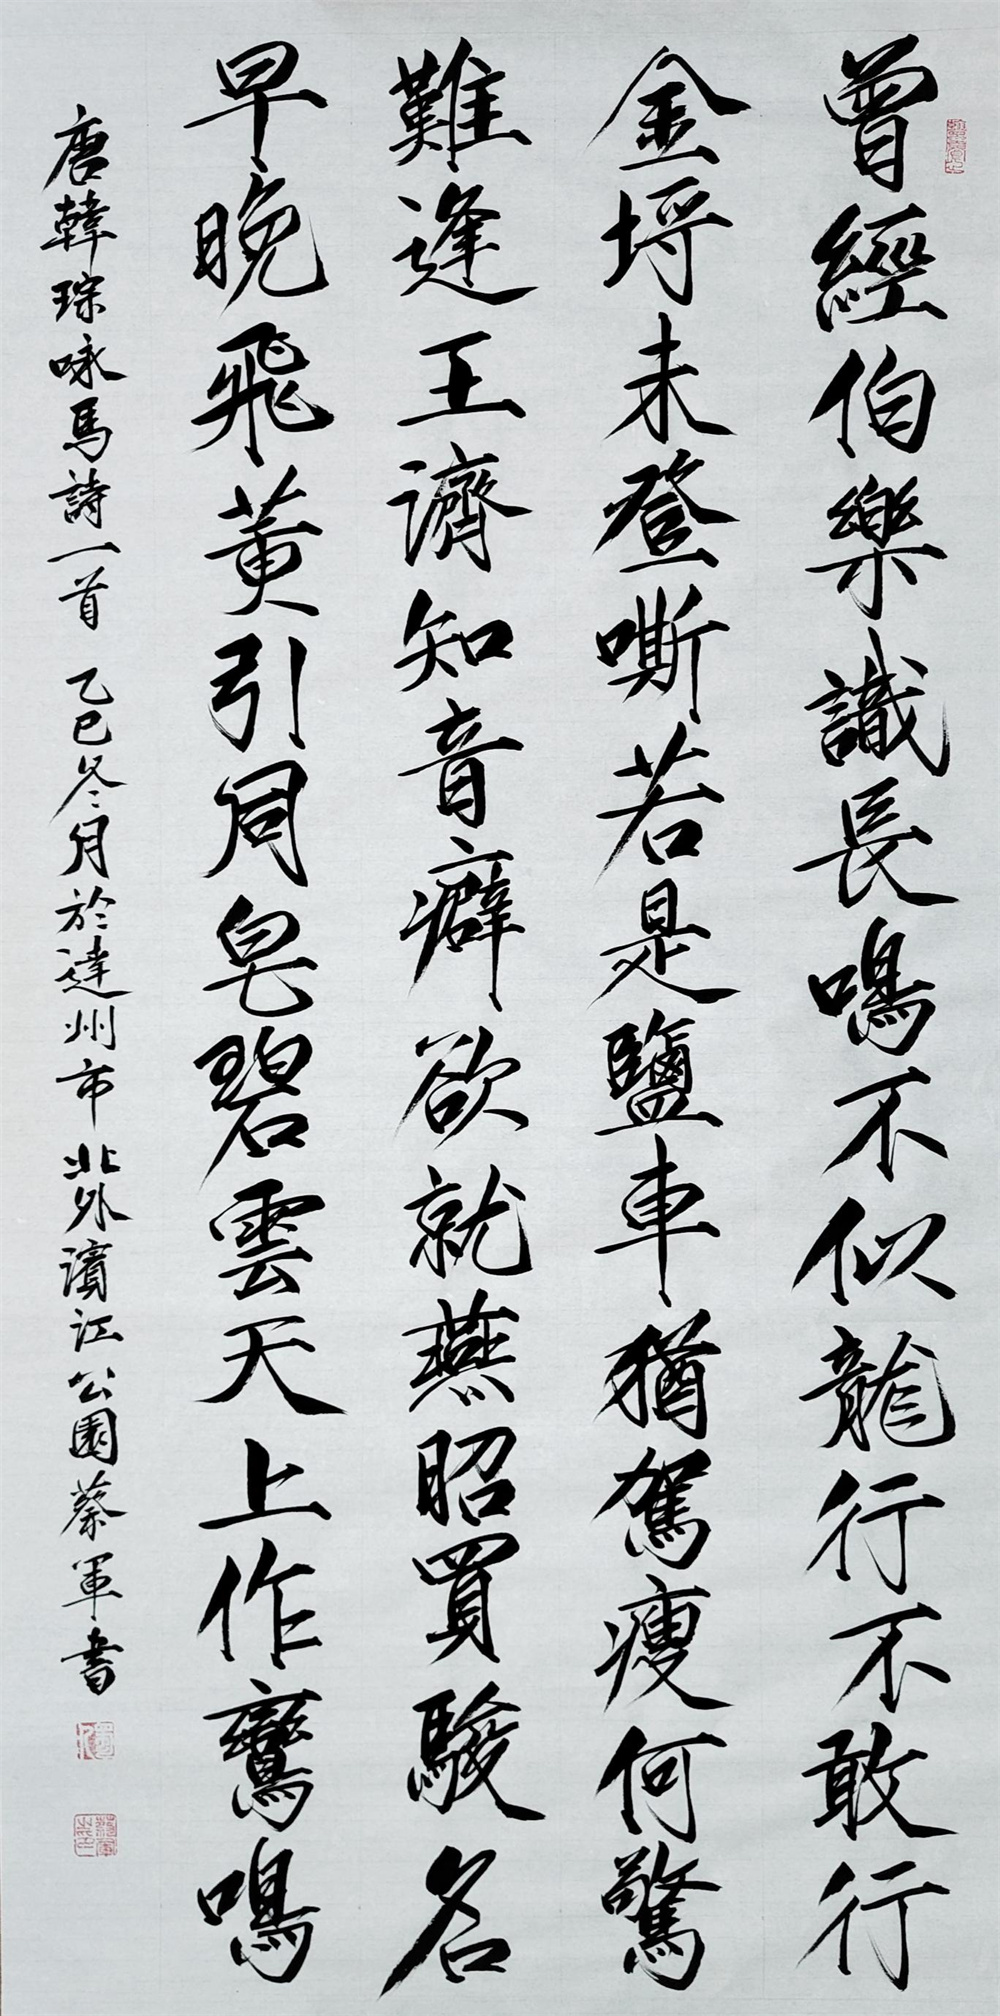 曾經伯樂識長鳴不似龍行不敢行
金埒未登嘶若是鹽車猶駕瘦何驚
難逢王濟知音癖欲就燕昭買駿名
早晚飛黃引同皂碧雲天上作鸞鳴
唐韓琮咏馬詩一首 乙巳冬月於達州市北外濱江公園蔡軍書